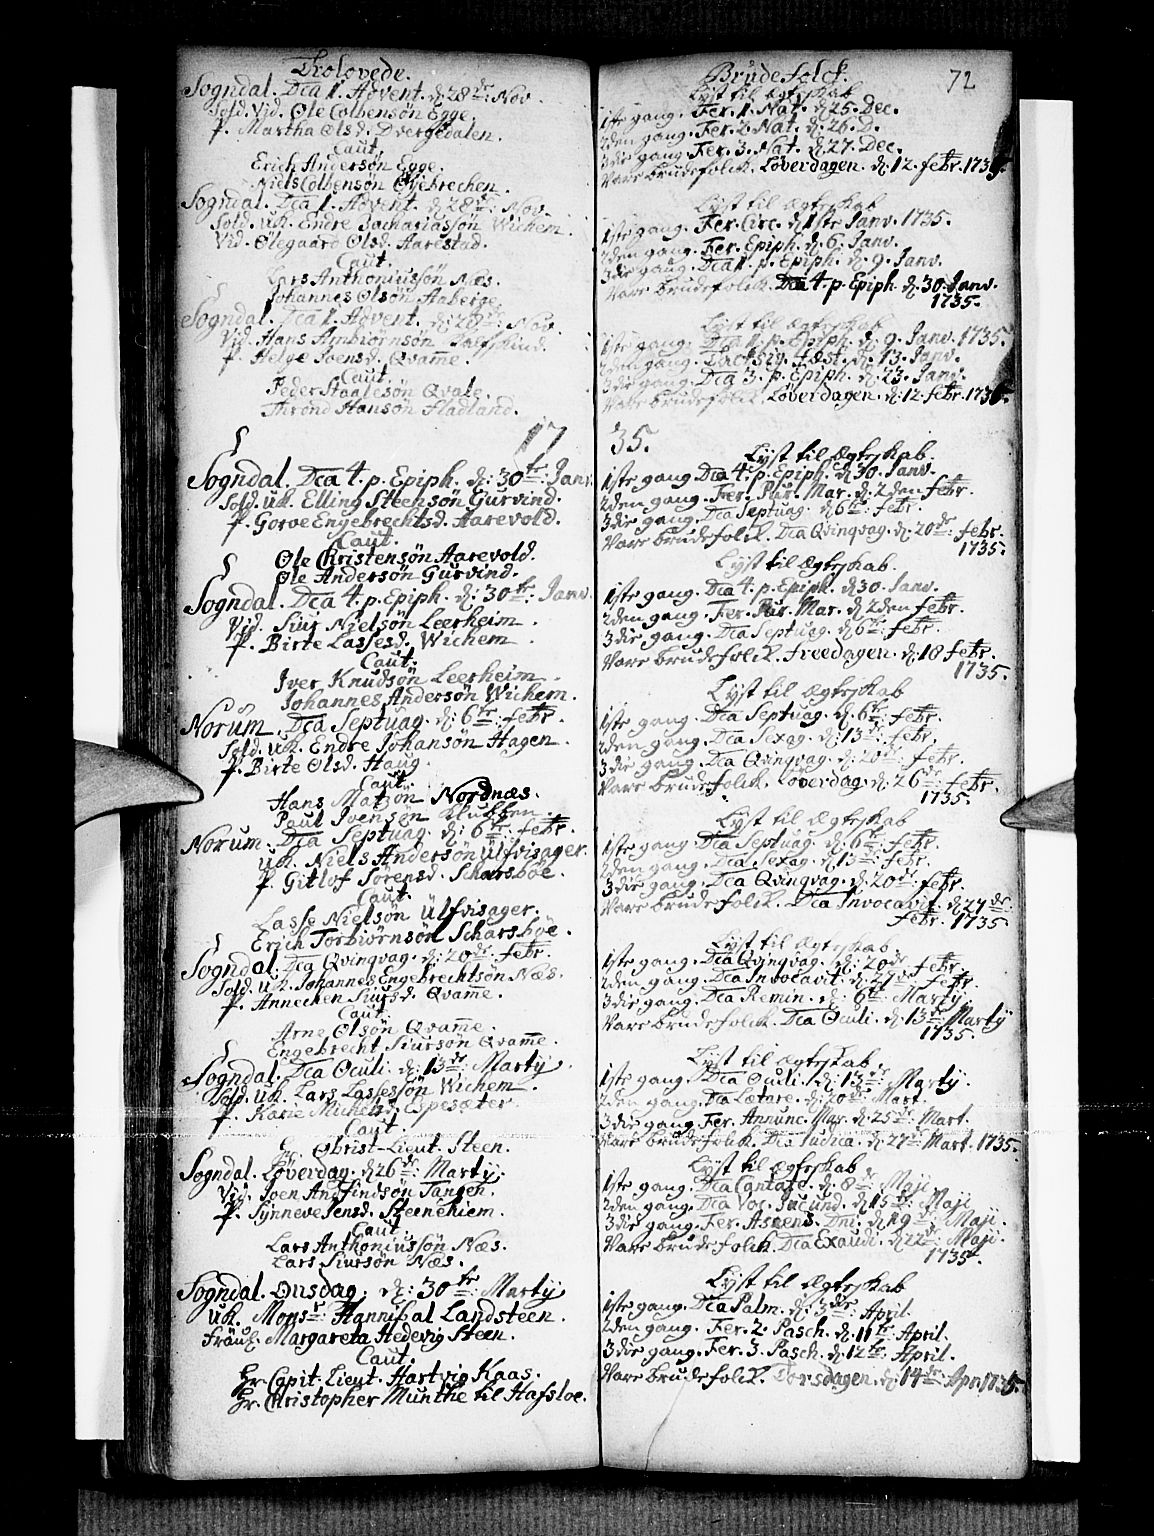 Trolovede.
Sogndal. Dca 1. Advent. d: 28de: Nov.
Sold. Vid. Ole Colbensøn Egge.
P. Martha Olsd. Dvergedalen.
Caut.
Erich Andersøn Egge.
Niels Colbensøn Øyebrechen.
Sogndal. Dca 1. Advent. d: 28de: Nov.
Sold. uk. Endre Zachariassøn Wichem.
Vid. Ølegaard Olsd. Aarestad.
Caut.
Lars Anthoniussøn Næs.
Johannes Olsøn Aaberge.
Sogndal. Dca 1. Advent. d: 28de: Nov.
Vid. Hans Ambiørnsøn
P. Helge Joensd. Qvam̅e.
Caut.
Peder Haagesøn Qvale.
Thrond Hansøn Fladland.
17
Sogndal. Dca 4. p. Epiph. d: 30te: Janv.
Sold. uk. Elling Steensøn Gurvind.
P. Gorve Engebrechtsd. Aarevold.
Caut.
Ole Christensøn Aarevold.
Ole Andersøn Gurvind.
Sogndal. Dca 4. p. Epiph. d: 30te: Janv.
Vid. Siur Nielsøn Leerheim.
P. Birte Lassesd. Wichem.
Caut.
Iver Knudsøn Leerheim.
Johannes Andersøn Wichem.
Norum. Dca Septuag. d: 6te: febr.
Sold. uk. Endre Johansøn Hagen.
P. Birte Olsd. Haug.
Caut.
Hans Matzøn Nordnæs.
Poul Ivensøn Klubben.
Norum. Dca Septuag. d: 6te: febr.
uk. Niels Andersøn Ulfvisager.
P. Gitlof Sørensd. Scharsbøe.
Caut.
Lasse Nielsøn Ulfvisager.
Erich Torbiørnsøn Scharsbøe.
Sogndal. Dca Qvinqvag. d: 20de: febr.
Sold. uk. Johannes Engebrechtsøn Næs.
P. Annechen Siursd. Qvam̅e.
Caut.
Arne Olsøn Qvam̅e.
Engebrecht Siursøn Qvam̅e.
Sogndal. Dca Oculi. d: 13de: Martij.
Sold. uk. Lars Lassessøn Wichem.
P. Karie Michelsd. Espesæter.
Caut.
Hr. Obrist-Lieut. Steen.
Sogndal. Løverdag. d: 26de: Martij.
Vid. Joen Andfindsøn Tangen.
P. Synneve Jensd. Steenehiem.
Caut.
Lars Anthoniussøn Næs.
Lars Siursøn Næs.
Sogndal. Onsdag. d: 30te: Martij
uk. Monsr: Hannibal Landsteen.
Fräul. Margareta Hedevig Steen.
Caut.
Hr. Capit. Lieut. Hartvig Kaas.
Hr. Christopher Munthe til Hafsloe.
72
Brudefolck.
Lyst til Ægteskab
1ste gang. Fer. 1. Nat. d: 25. Dec.
2den gang. Fer. 2. Nat. d: 26. D.
3die gang. Fer. 3. Nat. d: 27. Dec.
Vare brudefolck. Løverdagen. d: 12. febr. 1735.
Lyst til Ægteskab
1ste gang. Fer. Circ. d: 1ste Janv. 1735.
2den gang. Fer. Epiph. d: 6. Janv.
3die gang. Dca 1. p. Epiph. d: 9. Janv.
Vare brudefolck. Dca 4. p. Epiph. d: 30. Janv.
1735.
Lyst til Ægteskab
1ste gang. Dca 1. p. Epiph. d: 9. Janv. 1735.
2den gang. Tacksig. Fæst. d: 13. Janv.
3die gang. Dca 3. p. Epiph. d: 23. Janv.
Vare brudefolck. Løverdagen. d: 12. febr. 1735.
35.
Lyst til Ægteskab.
1ste gang Dca 4. p. Epiph. d: 30. Janv.
2den gang. Fer. Pur. Mar. d: 2den febr.
3die gang. Dca Septuag. d: 6te: febr.
Vare brudefolck. Dca Qvinqvag. d: 20de: febr.
1735.
Lyst til Ægteskab.
1ste gang. Dca 4. p. Epiph. d: 30. Janv.
2den gang. Fer. Pur. Mar. d: 2den febr.
3die gang. Dca Septuag. d: 6te: febr.
Vare brudefolck. freedagen. d: 18 febr.
1735.
Lyst til Ægteskab
1ste gang. Dca Septuag. d: 6te: febr.
2den gang. Dca Sexag. d: 13de: febr.
3die gang. Dca Qvinqvag. d: 20de: febr.
Vare brudefolck. Løverdag. d: 26de: febr.
1735.
Lyst til Ægteskab
1ste gang. Dca Septuag. d: 6te: febr.
2den gang. Dca Sexag. d: 13de: febr.
3die gang. Dca Qvinqvag. d: 20de: febr.
Vare brudefolck. Dca Invocavit. d: 27de:
febr. 1735.
Lyst til Ægteskab
1ste gang. Dca Qvinqvag. d: 20de febr.
2den gang. Dca Invocavit. d: 27de: febr.
3die gang. Dca Remin. d: 6te: Martij.
Vare brudefolck. Dca Oculi. d: 13de: Martij
1735.
Lyst til Ægteskab
1ste gang. Dca Oculi. d: 13de: Martij.
2den gang. Dca Lætare. d: 20de: Mart.
3die gang. Fer. Annunc. Mar. d: 25de: Mart.
Vare brudefolck. Dca Judica. d: 27de: Mart. 1735.
Lyst til Ægteskab
1ste gang. Dca Cantate. d: 8de: Maji.
2den gang. Dca Voc. Jucund. d: 15de: Maji
3die gang. Fer. Ascens. Dni. d: 19de: Maji.
Vare brudefolck. Dca Exaudi. d: 22de: Maji.
1735.
Lyst til Ægteskab
1ste gang. Dca Palm. d: 3die: April.
2den gang. Fer. 2. Pasch. d: 11te: April.
3die gang. Fer. 3. Pasch. d: 12te: April.
Vare brudefolck. Torsdagen. d: 14de: Apr. 1735.